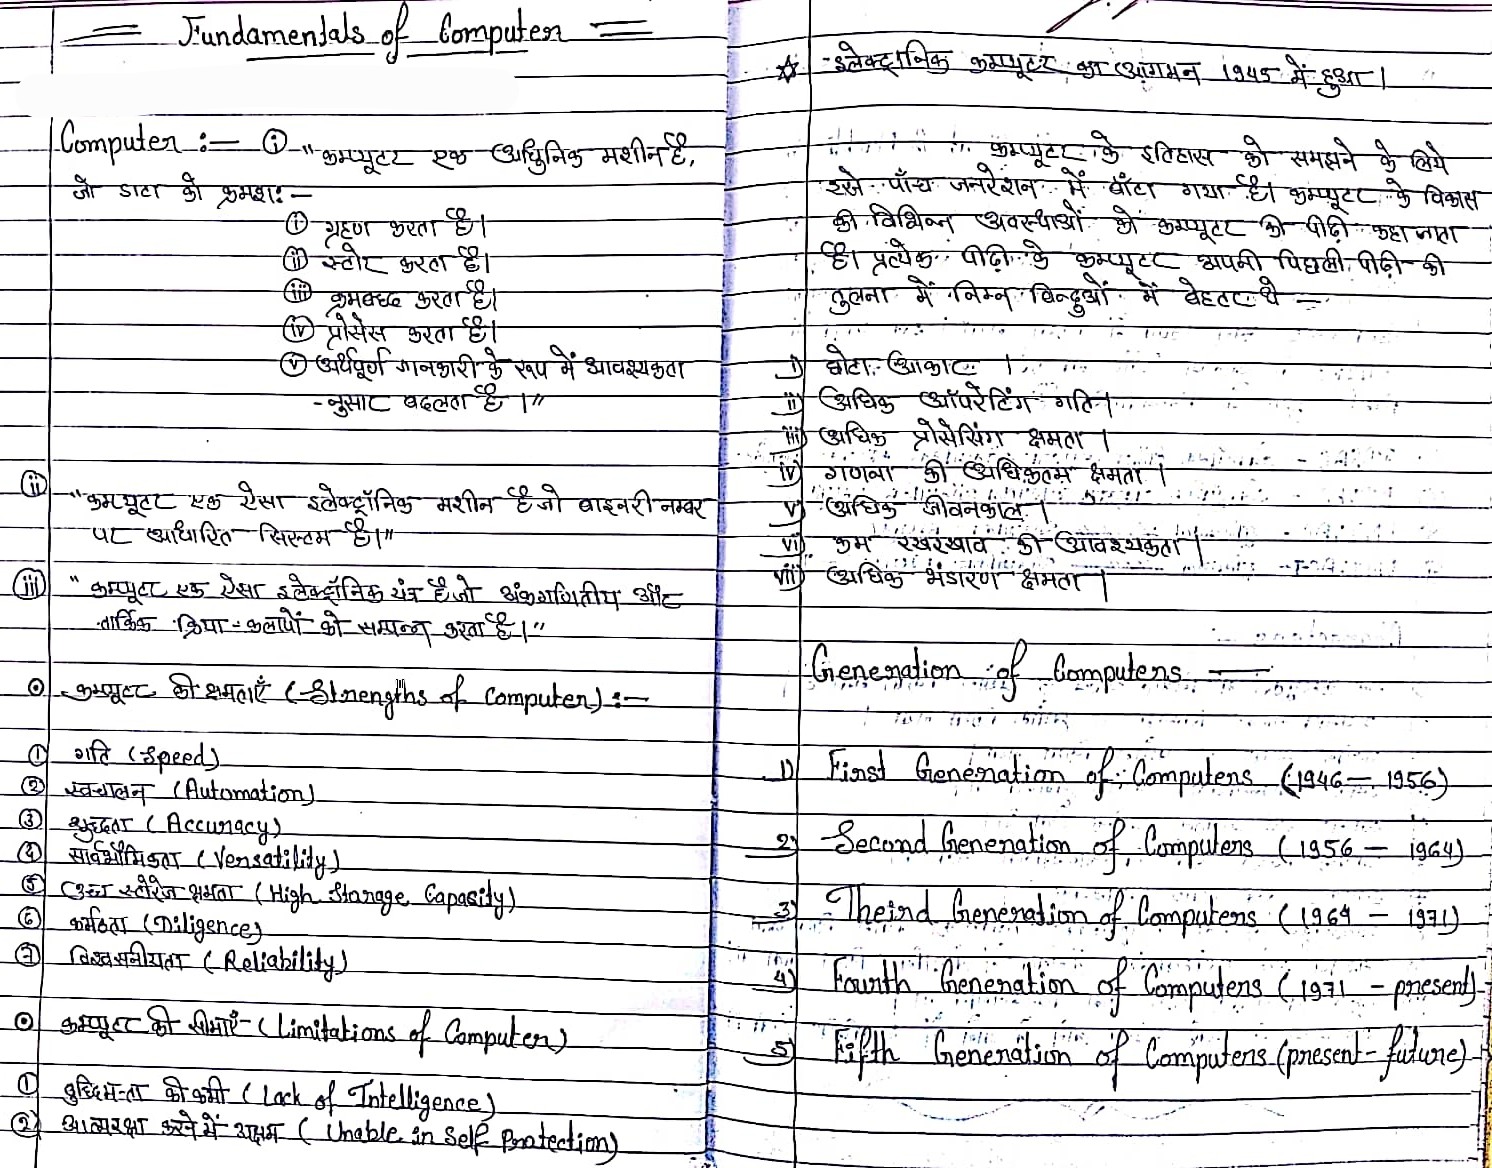 Fundamentals of Computer
Computer :— (i) "कम्प्यूटर एक आधुनिक मशीन है,
जो डाटा को क्रमशः—
(i) ग्रहण करता है।
(ii) स्टोर करता है।
(iii) क्रमबद्ध करता है।
(iv) प्रोसेस करता है।
(v) अर्थपूर्ण जानकारी के रूप में आवश्यकता
-नुसार बदलता है।"
(ii) "कम्प्यूटर एक ऐसा इलेक्ट्रॉनिक मशीन है जो बाइनरी नम्बर
पर आधारित सिस्टम है।"
(iii) "कम्प्यूटर एक ऐसा इलेक्ट्रॉनिक यंत्र है जो अंकगणितीय और
तार्किक क्रिया-कलापों को सम्पन्न करता है।"
⊙ कम्प्यूटर की क्षमताएँ (Strengths of Computer) :—
① गति (Speed)
② स्वचालन (Automation)
③ शुद्धता (Accuracy)
④ सार्वभौमिकता (Versatility)
⑤ उच्च स्टोरेज क्षमता (High Storage Capasity)
⑥ कर्मठता (Diligence)
⑦ विश्वसनीयता (Reliability)
⊙ कम्प्यूटर की सीमाएँ- (Limitations of Computer)
① बुद्धिमत्ता की कमी (Lack of Intelligence)
② आत्मरक्षा करने में अक्षम (Unable in Self Protection)
☆ -इलेक्ट्रानिक कम्प्यूटर का आगमन 1945 में हुआ।
कम्प्यूटर के इतिहास को समझने के लिये
इसे पाँच जनरेशन में बाँटा गया है। कम्प्यूटर के विकास
की विभिन्न अवस्थाओं को कम्प्यूटर की पीढ़ी कहा जाता
है। प्रत्येक पीढ़ी के कम्प्यूटर अपनी पिछली पीढ़ी की
तुलना में निम्न बिन्दुओं में बेहतर थे —
i) छोटा आकार ।
ii) अधिक ऑपरेटिंग गति।
iii) अधिक प्रोसेसिंग क्षमता ।
iv) गणना की अधिकतम क्षमता ।
v) अधिक जीवनकाल ।
vi) कम रखरखाव की आवश्यकता ।
vii) अधिक भंडारण क्षमता ।
Generation of Computers —
1) First Generation of Computers (1946 — 1956)
2) Second Generation of Computers (1956 — 1964)
3) Theird Generation of Computers (1964 — 1971)
4) Fourth Generation of Computers (1971 - present)
5) Fifth Generation of Computers (present - future)